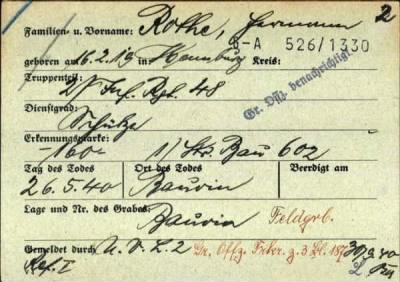 Familien- u. Vorname: Rothe, Hermann 2
B-A 526/1330
geboren am 16.2.19 in Hamburg Kreis:
Truppenteil: Inf. Rgt. 48
Gr. Offz. benachrichtigt
Dienstgrad: Schütze
Erkennungsmarke: -160- 1/ Bau 602
Tag des Todes Ort des Todes Beerdigt am
26.5.40 Bauvin
Lage und Nr. des Grabes: Bauvin Feldgrb.
Gemeldet durch Gr. Offz. z. 3 Bl. 30.9.40
Ref. I